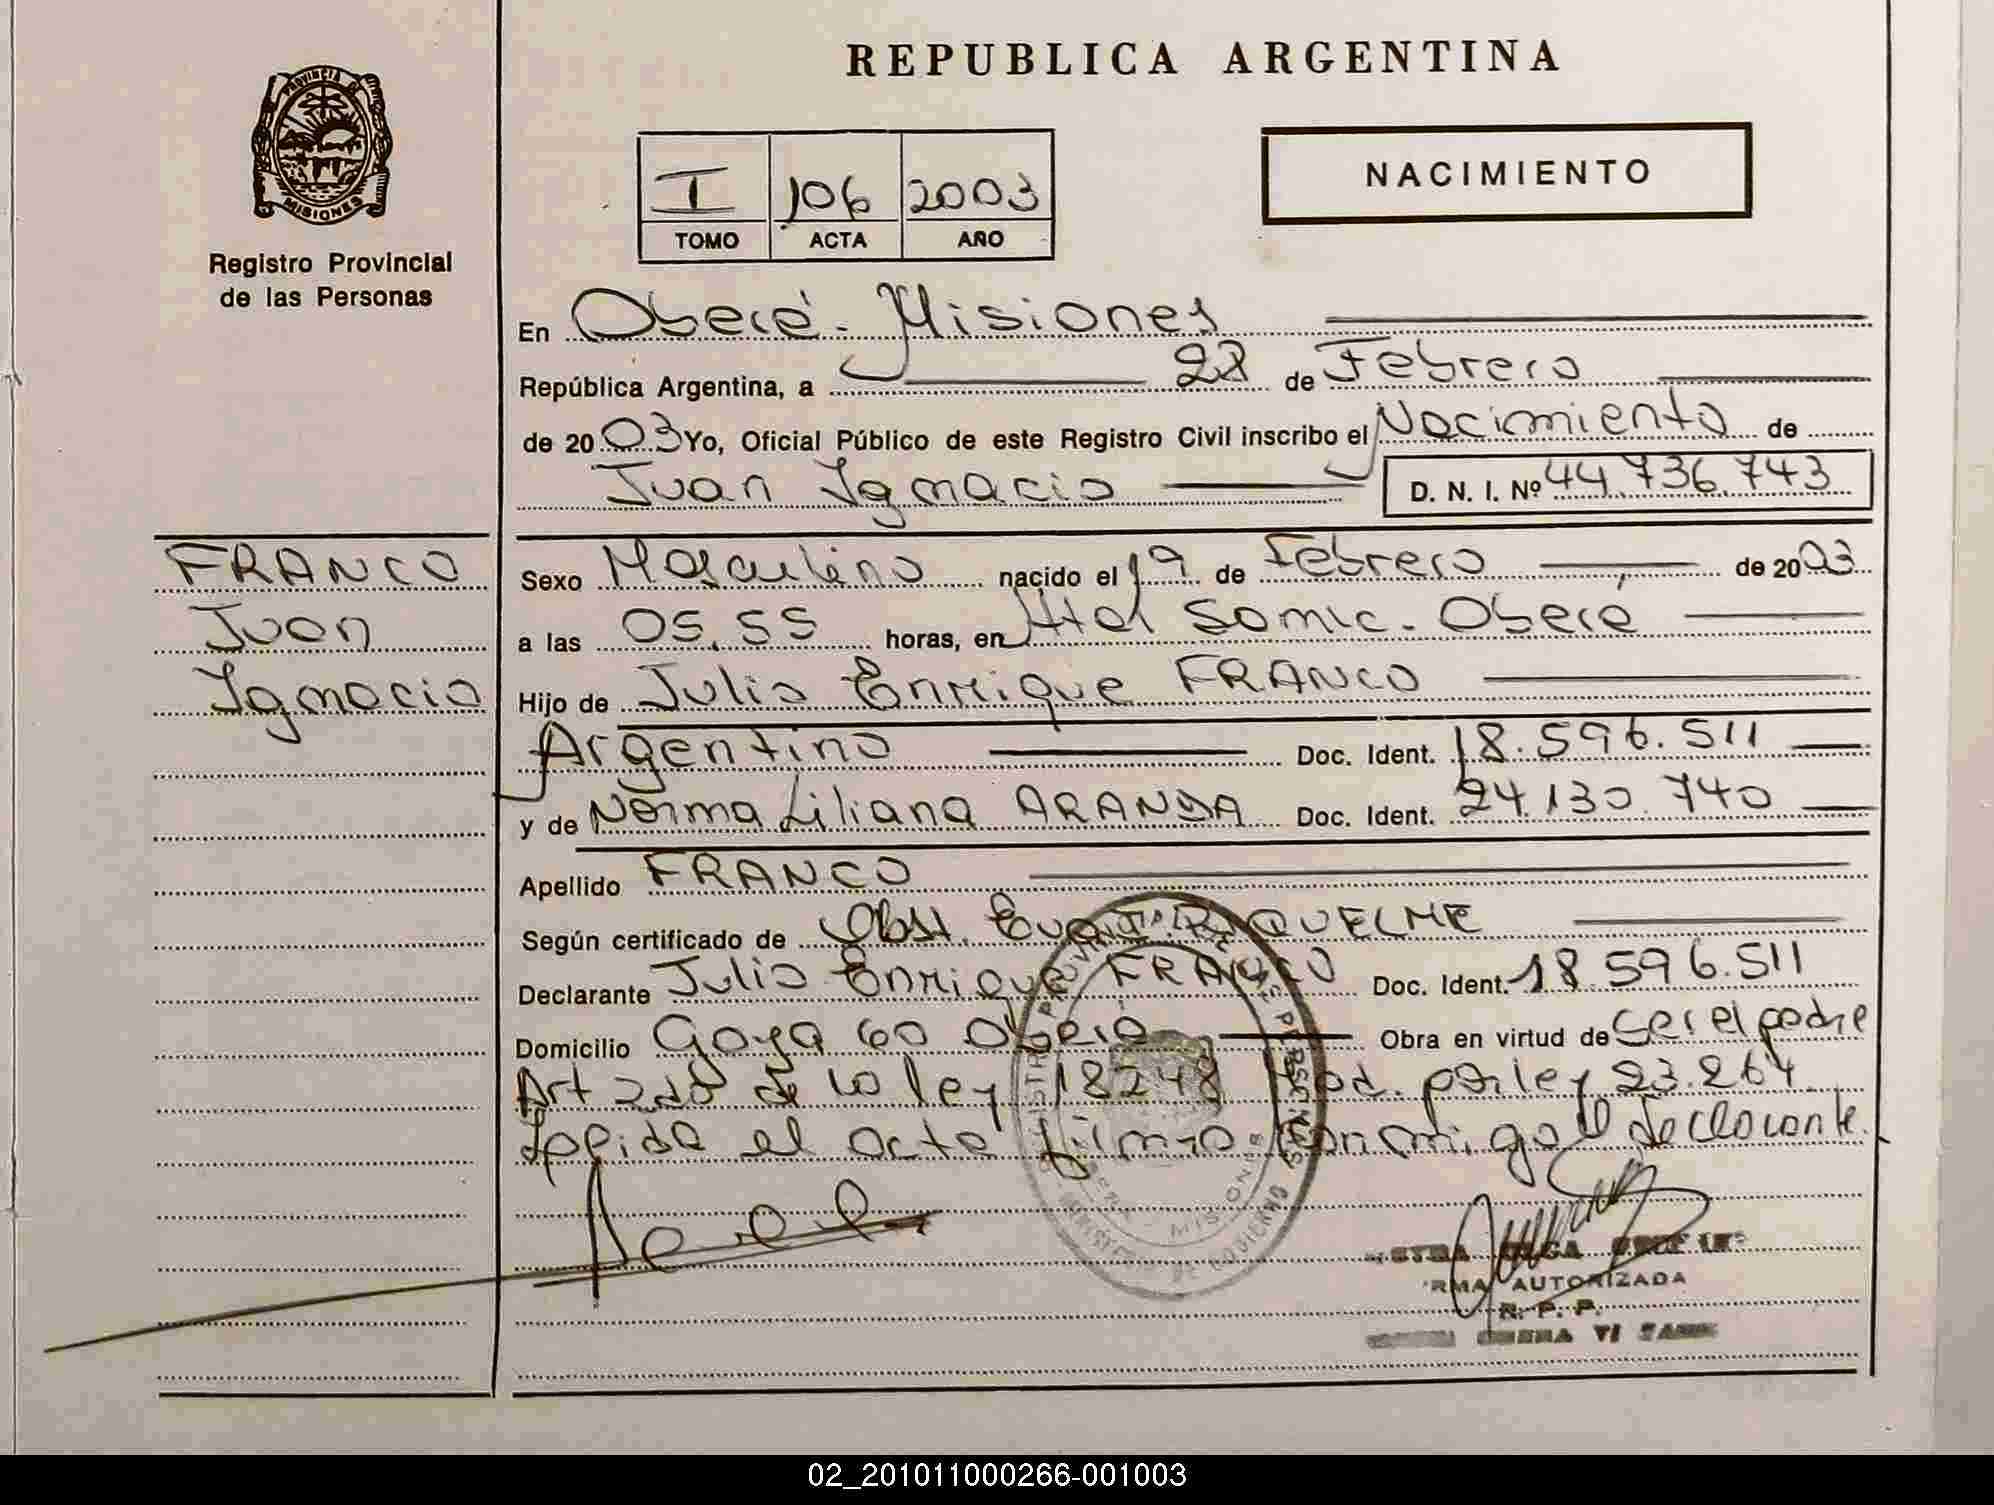 REPUBLICA ARGENTINA
PROVINCIA DE
MISIONES
Registro Provincial
de las Personas
I 106 2003
TOMO ACTA AÑO
NACIMIENTO
En Oberá - Misiones
República Argentina, a 28 de Febrero
de 2003 Yo, Oficial Público de este Registro Civil inscribo el Nacimiento de
Juan Ignacio D. N. I. Nº 44.736.743
FRANCO
Juan
Ignacio
Sexo Masculino nacido el 19 de Febrero de 2003
a las 05.55 horas, en Htal Samic. Oberá
Hijo de Julio Enrique FRANCO
Argentino Doc. Ident. 18.596.511
y de Norma Liliana ARANDA Doc. Ident. 24.130.740
Apellido FRANCO
Según certificado de Obst. RIQUELME
Declarante Julio Enrique FRANCO Doc. Ident. 18.596.511
Domicilio Goya 60 Oberá Obra en virtud de ser el padre
Art 2do de la ley 18248 Mod. por ley 23.264
Leida el acta firma conmigo el declarante.
MISIONES
MINISTERIO DE GOBIERNO
OLGA
RMA AUTORIZADA
R. P. P.
02_201011000266-001003